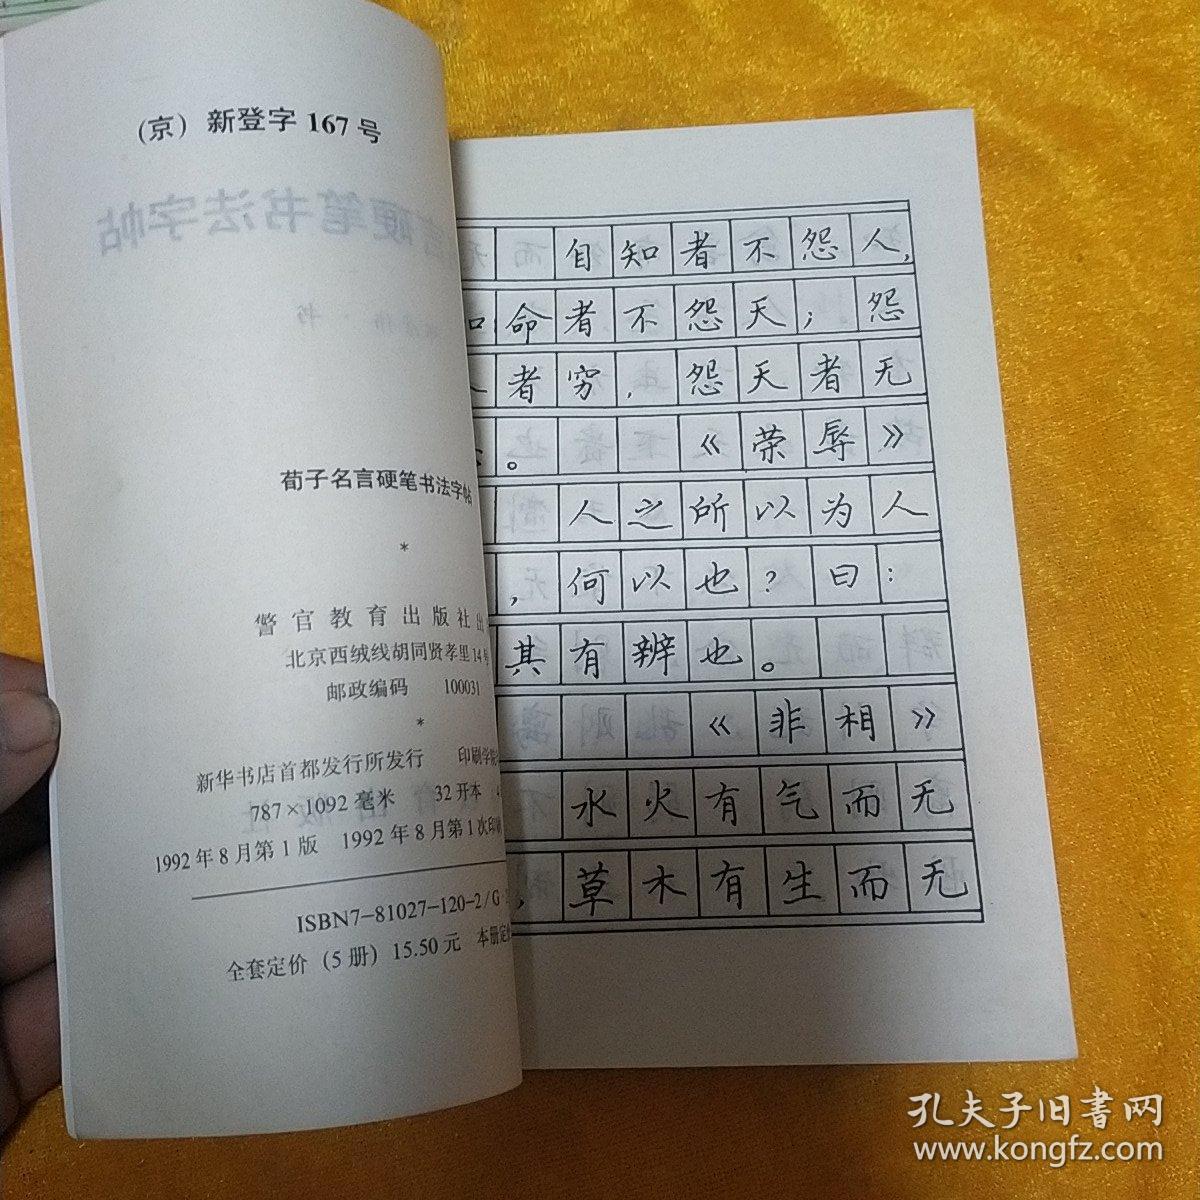 (京) 新登字 167 号
荀子名言硬笔书法字帖
*
警官教育出版社出
北京西绒线胡同贤孝里 14号
邮政编码 100031
*
新华书店首都发行所发行 印刷学院
787×1092 毫米 32 开本
1992 年 8 月第 1 版 1992 年 8 月第 1 次印
ISBN7-81027-120-2/G·
全套定价 (5 册) 15.50 元 本册定
自知者不怨人,
命者不怨天；怨
者穷，怨天者无
。《荣辱》
人之所以为人
，何以也？曰：
其有辨也。
《非相》
水火有气而无
，草木有生而无
孔夫子旧書网
www.kongfz.com